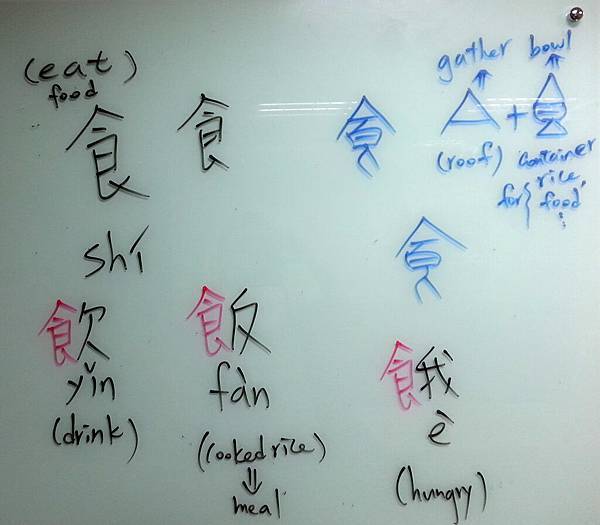 (eat)
food
食 食 食
gather bowl
+
(roof) container
for { rice,
food
⋮
shí
食
飲
yǐn
(drink)
飯
fàn
(cooked rice)
⇓
meal
餓
è
(hungry)